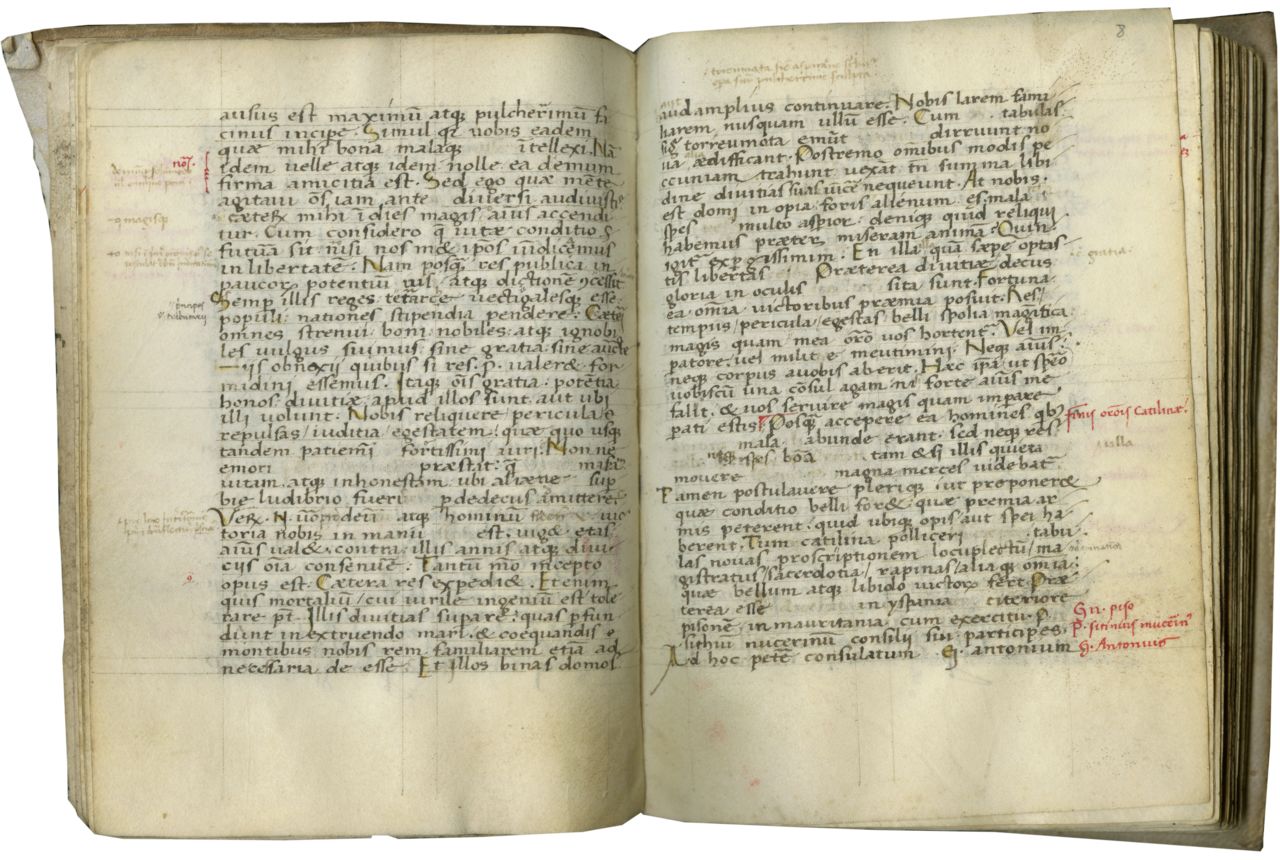 ausus est maximū atq; pulcherrimū fa
cinus incipe. Simul qr uobis eadem
quae mihi bona malaq; ītellexi. Nā
idem uelle atq; idem nolle ea demum
firma amicitia est. Sed ego quae mēte
agitaui oīs iam ante diuersi audiuistis
caeterų mihi ī dies magis aīus accendi
tur. Cum considero q uitae conditio
futura sit nisi nos m& ipos iudicemus
in libertate. Nam posq res publica in
paucor potentiū atq; dictione cessit
Semp illis reges tetrarce uectigalesq; esse
populi nationes stipendia pendere. Caeteri
omnes strenui boni nobiles atq; ignobi
les uulgus fuimus sine gratia sine aucte
iis obnoxii quibus si res. p. ualer& for
midini essemus. Itaq; oīs gratia potētia
honos diuitiae apud illos sunt aut ubi
illi uolunt. Nobis reliquere pericula
repulsas iuditia egestatem quae quo usq;
tandem patiemi fortissimi uiri. Non ne
emori praestat q
uitam atq; inhonestam ubi alienae sup
bie ludibrio fueri p dedecus amittere
Verų atq; hominū uic
toria nobis in manu est. uig& etas
aīus ual& contra illis annis atq; diui
ciis oīa consenue. Tantū mō incepto
opus est. Caetera res expedi&. Etenim
quis mortaliū cui uirile ingeniū est tole
rare pt. Illis diuitias supare quas pfun
dunt in extruendo mari & coequandis
montibus nobis rem familiarem etiā ad
necessaria de esse. Et illos binas domos
nōt.
8
aud amplius continuare. Nobis larem fami
liarem nusquam ullū esse. Cum tabulas
sig torreumota emūt dirruunt no
ua aedifficant. Postremo omībus modis pe
ccuniam trahunt uexāt tn summa libi
dine diuitias suas uice nequeunt. At nobis
est domi in opia foris alienum es. mala
spes multo asprior. denique quid reliqui
habemus praeter miseram anima. Quin
igit exp gissimim. En illa qua saepe optas
tis libertas Praeterea diuitiae decus
gloria in oculis sita sunt. Fortuna
ea omīa uictoribus praemia posuit. Res
tempus pericula egestas belli spolia magnifica
magis quam mea orō uos hortent. Vel im
patore uel milite me utimini. Neq; aīus
neq; corpus auobis aberit. Haec ipa ut spero
uobiscū una cōsul agam ni forte aīus me
fallt & uos seruire magis quam impare
pati estis. Posq accepere ea homines qb
mala abunde erant. sed neq; res
neq; spes bōa tam & si illis quieta
mouere magna merces uidebat
Tamen postulauere plerique ut preponer&
quae conditio belli for& quae premia ar
mis peterent. quid ubique opis aut spei ha
berent. Tum catilina polliceri tabu
las nouas proscriptionem locuplectū ma
gistratus sacerdotia rapinas aliaq; omīa
quae bellum atq; libido uictorų fert. Prae
terea esse in yspania citeriore
pisonē in mauritania cum exercitu P.
sithiū nucerinū consilii sui participes
Ad hoc petē consulatum G. antonium
finis orōis Catilinae.
gratia.
Gn. piso
P. sitinius nucerin
G. Antonius